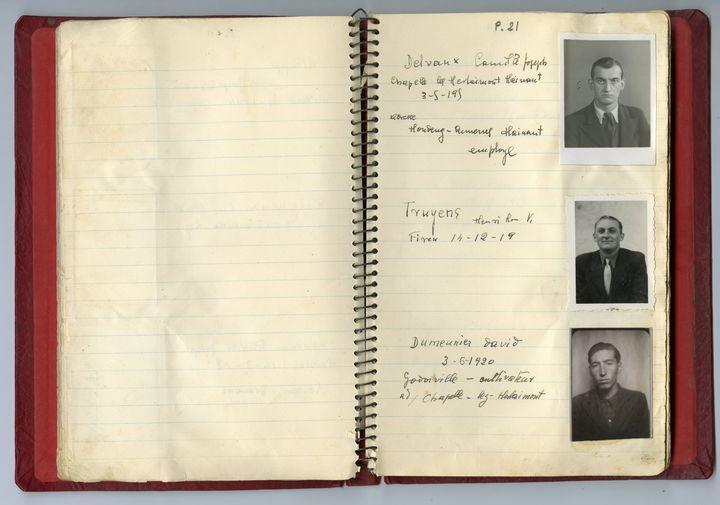 P. 21
Delvaux Camille Joseph
Chapelle lez Herlaimont Hainant
3-5-191
adresse
Houdeng-Aimeries Hainant
employé
Truyens Henri Rom. V.
14-12-19
Dumeunier David
3-6-1920
Godarville - cultivateur
ad/ Chapelle-lez-Herlaimont